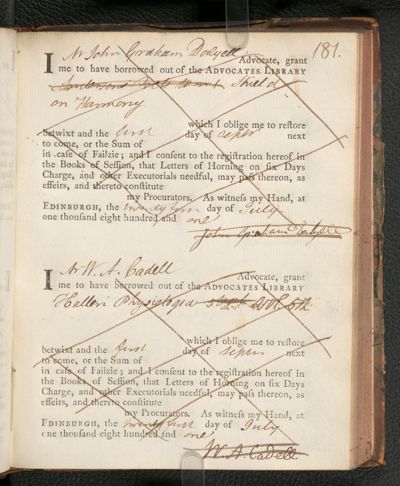 181.
I Mr John Graham Dalyell Advocate, grant
me to have borrowed out of the ADVOCATES LIBRARY
Shield
on Harmony
which I oblige me to reſtore
betwixt and the first day of Septr next
to come, or the Sum of
in caſe of Failzie; and I conſent to the regiſtration hereof in
the Books of Seſſion, that Letters of Horning on ſix Days
Charge, and other Executorials needful, may paſs thereon, as
effeirs, and thereto conſtitute
my Procurators. As witneſs my Hand, at
EDINBURGH, the twenty first day of July
one thouſand eight hundred and one
John Graham Dalyell
I Mr W. A. Cadell Advocate, grant
me to have borrowed out of the ADVOCATES LIBRARY
Halleri Physiologia Vol. 5th
which I oblige me to reſtore
betwixt and the first day of Septr next
to come, or the Sum of
in caſe of Failzie; and I conſent to the regiſtration hereof in
the Books of Seſſion, that Letters of Horning on ſix Days
Charge, and other Executorials needful, may paſs thereon, as
effeirs, and thereto conſtitute
my Procurators. As witneſs my Hand, at
EDINBURGH, the twenty first day of July
one thouſand eight hundred and one
W. A. Cadell